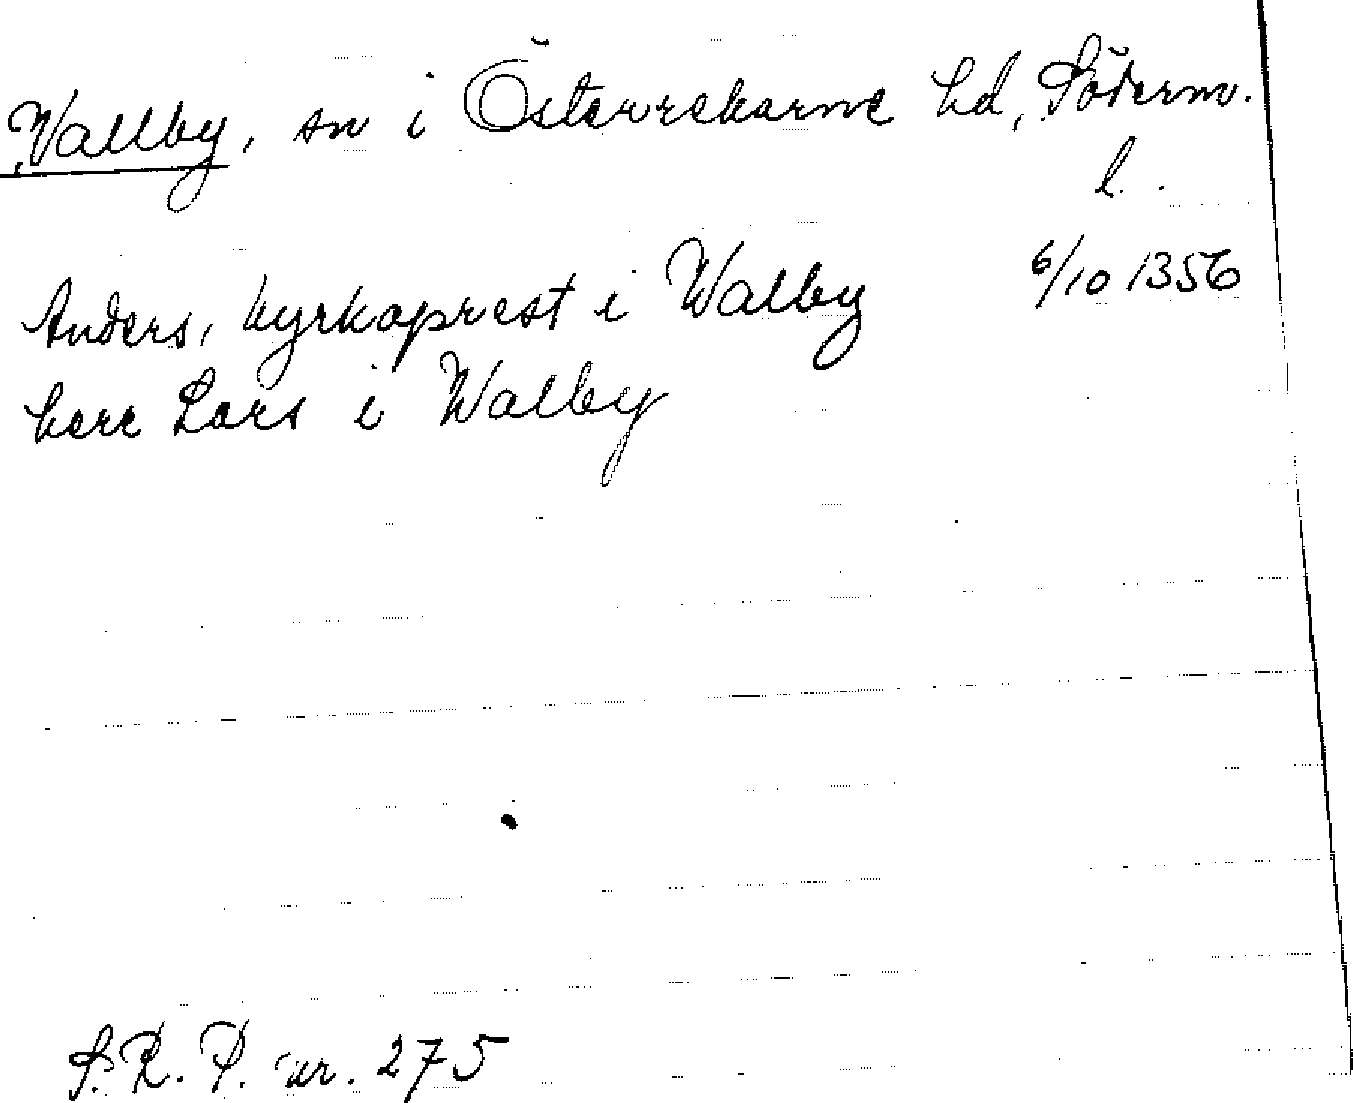 Wallby, sn i Österrekarne hd, Söderm.
l.
Anders, kyrkoprest i Walby 6/10 1356
herr Lars i Walby
S.R.P. nr. 275